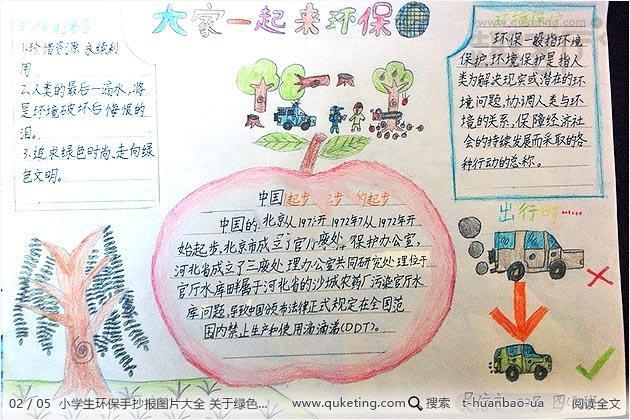 大家一起来环保
www.quketing.com
1.珍惜资源 永续利
用
2.人类的最后一滴水,将
是环境破坏后悔恨的
泪。
3.追求绿色时尚、走向绿
色文明。
环保一般指环境
保护,环境保护是指人
类为解决现实或潜在的环
境问题,协调人类与环
境的关系,保障经济社
会的持续发展而采取的各
种行动的总称。
中国
中国的,北京从1972年7从1972年开
始起步,北京市成立了官厅 保护办公室,
河北省成立了三废处理办公室共同研究处理位于
官厅水库畔属于河北省的沙城农药厂污染官厅水
库问题,导致中国颁布法律正式规定在全国范
围内禁止生产和使用滴滴涕(DDT)。
出行时……
02 / 05 小学生环保手抄报图片大全 关于绿色... www.quketing.com 搜索 t-huanbao-ua 阅读全文